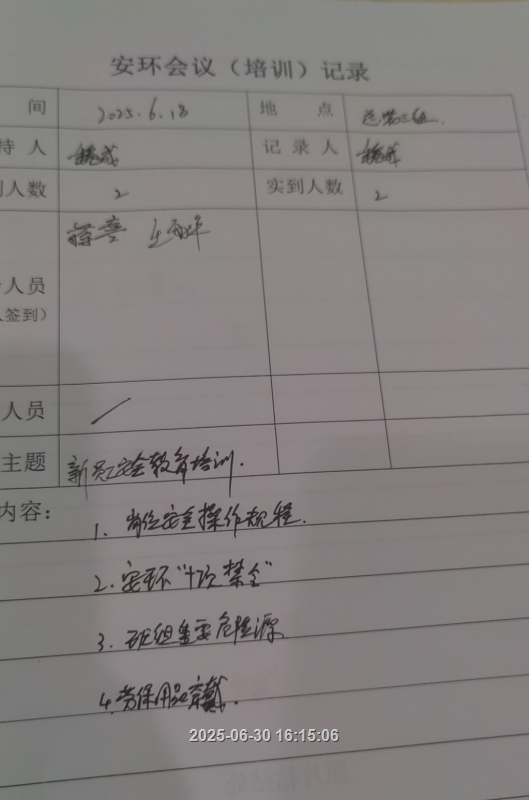 安环会议（培训）记录
间 2025.6.18 地 点 总装三组.
持 人 记 录 人
到人数 2 实到人数 2
蒋亮
人员
人签到）
人员 /
主题 新员工安全教育培训.
内容：
1. 岗位安全操作规程.
2. 安环"十项禁令"
3. 班组重要危险源
4. 劳保用品穿戴.
2025-06-30 16:15:06